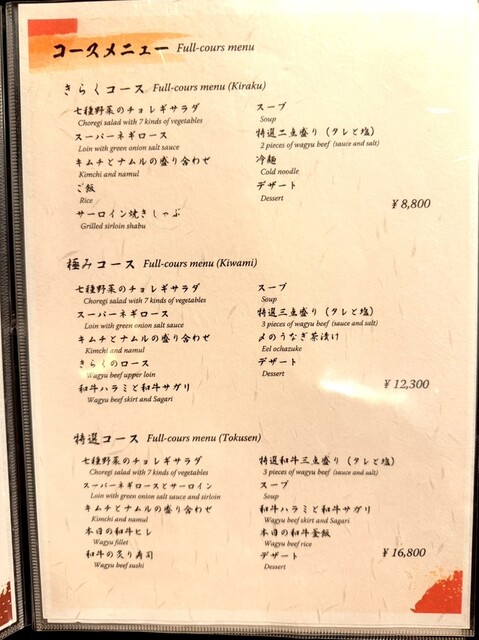 コースメニュー Full-cours menu
きらくコース Full-cours menu (Kiraku)
七種野菜のチョレギサラダ
Choregi salad with 7 kinds of vegetables
スーパーネギロース
Loin with green onion salt sauce
キムチとナムルの盛り合わせ
Kimchi and namul
ご飯
Rice
サーロイン焼きしゃぶ
Grilled sirloin shabu
スープ
Soup
特選二点盛り (タレと塩)
2 pieces of wagyu beef (sauce and salt)
冷麺
Cold noodle
デザート
Dessert
¥ 8,800
極みコース Full-cours menu (Kiwami)
七種野菜のチョレギサラダ
Choregi salad with 7 kinds of vegetables
スーパーネギロース
Loin with green onion salt sauce
キムチとナムルの盛り合わせ
Kimchi and namul
きらくのロース
Wagyu beef upper loin
和牛ハラミと和牛サガリ
Wagyu beef skirt and Sagari
スープ
Soup
特選三点盛り (タレと塩)
3 pieces of wagyu beef (sauce and salt)
〆のうなぎ茶漬け
Eel ochazuke
デザート
Dessert
¥ 12,300
特選コース Full-cours menu (Tokusen)
七種野菜のチョレギサラダ
Choregi salad with 7 kinds of vegetables
スーパーネギロースとサーロイン
Loin with green onion salt sauce and sirloin
キムチとナムルの盛り合わせ
Kimchi and namul
本日の和牛ヒレ
Wagyu fillet
和牛の炙り寿司
Wagyu beef sushi
特選和牛三点盛り (タレと塩)
3 pieces of wagyu beef (sauce and salt)
スープ
Soup
和牛ハラミと和牛サガリ
Wagyu beef skirt and Sagari
本日の和牛釜飯
Wagyu beef rice
デザート
Dessert
¥ 16,800